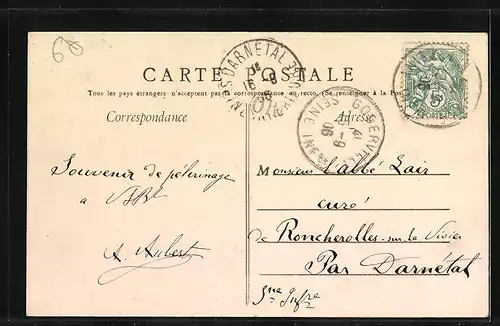 60
CARTE POSTALE
Tous les pays étrangers n'acceptent pas la correspondance au recto. (Se renseigner à la Poste)
Correspondance
Adresse
DARNETAL
GODERVILLE
SEINE INFRE
Souvenir de pélerinage
à
A. Aubert
Monsieur l'abbé Lair
curé
de Roncherolles-sur-le Vivier
Par Darnétal
Sne Infre